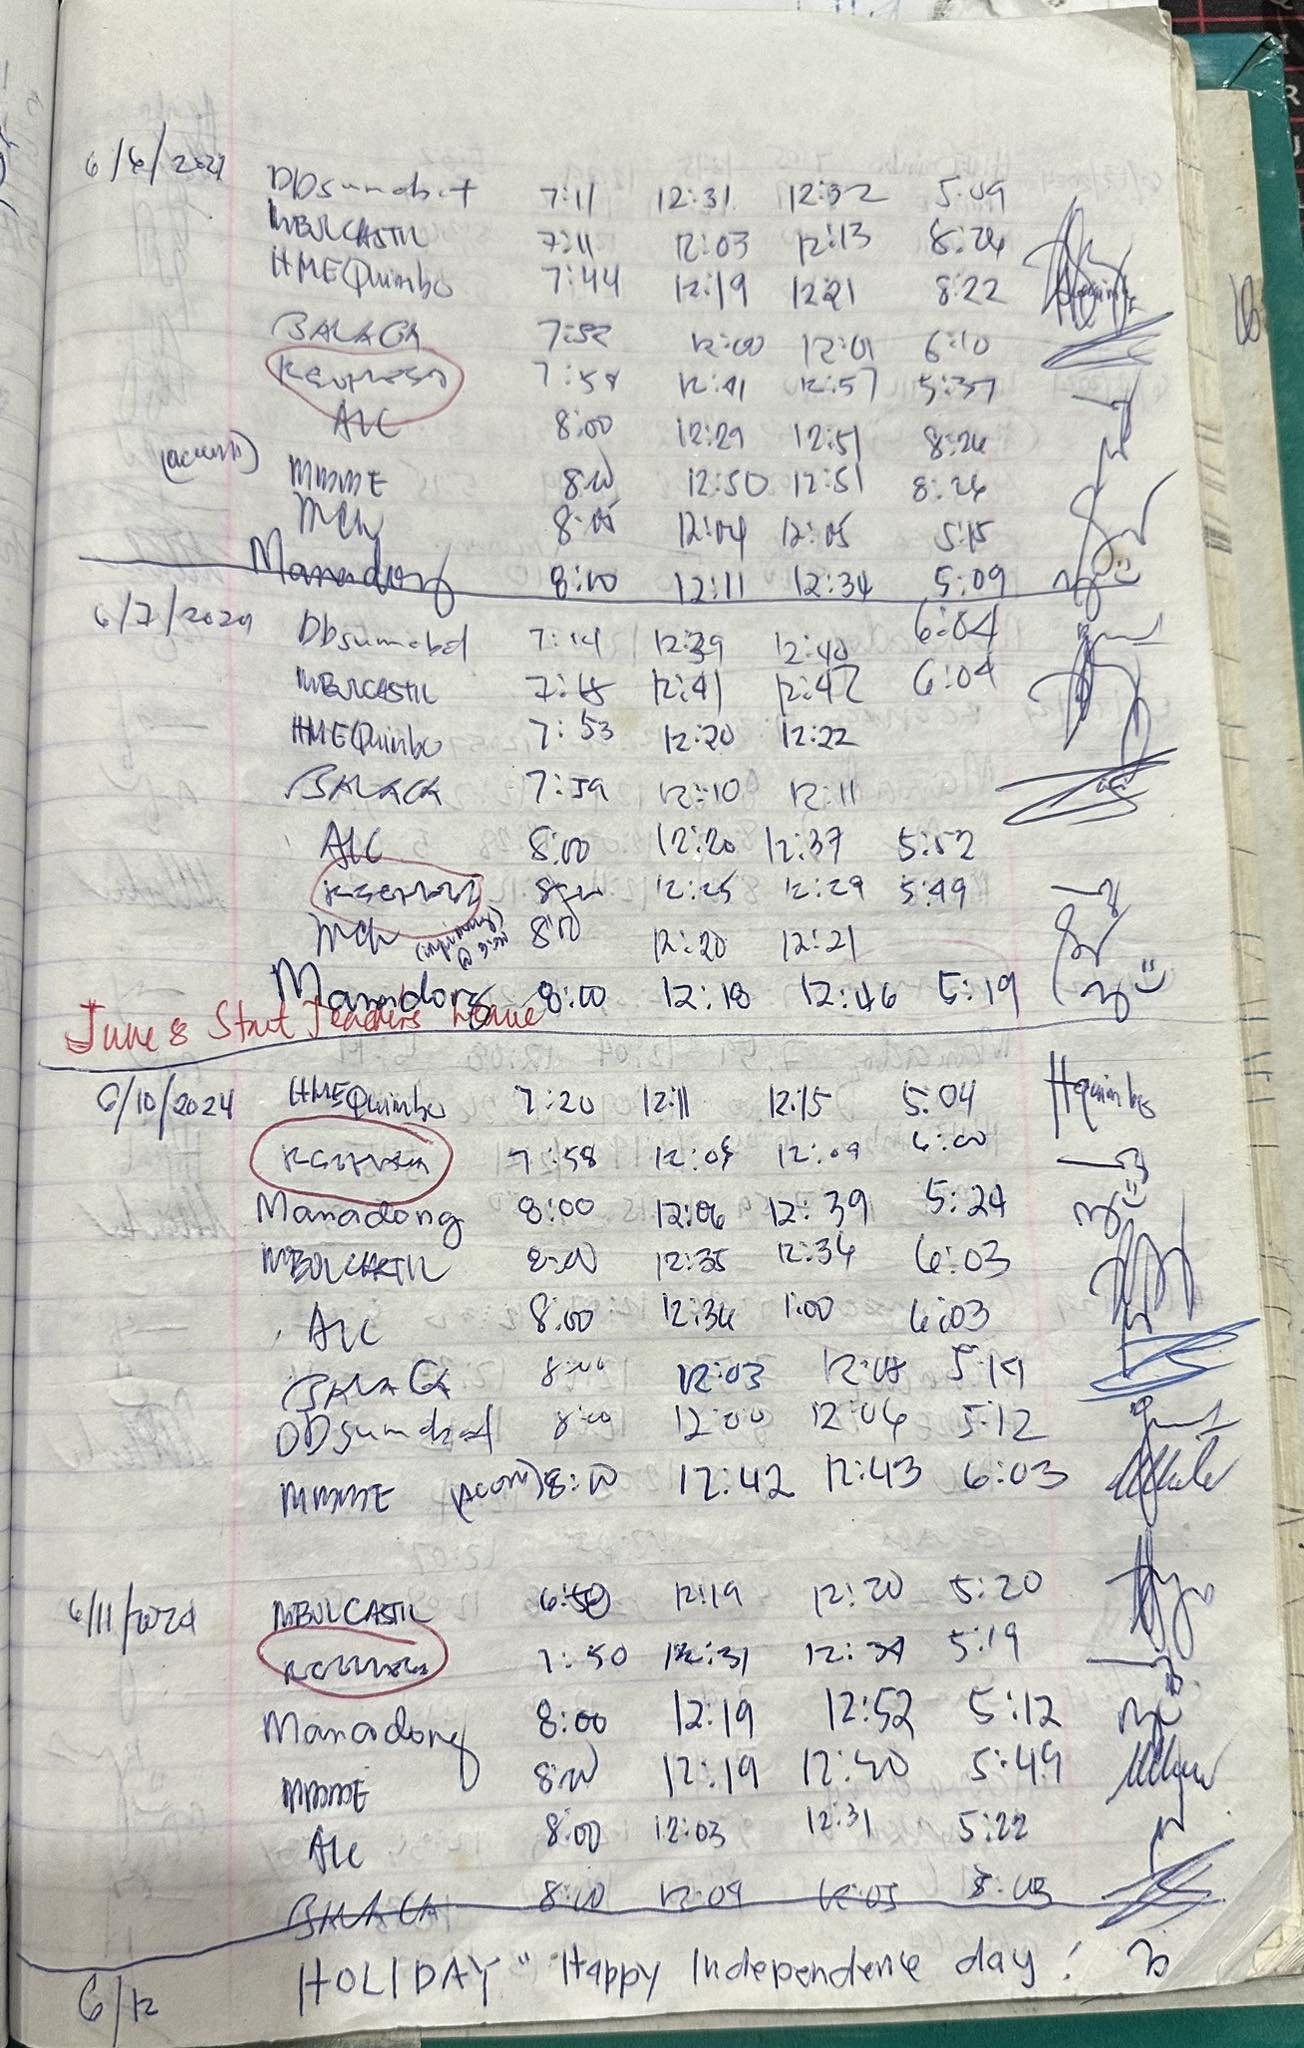 6/6/2024 DDsumabat 7:11 12:31 12:32 5:09
MBULCASTIL 7:11 12:03 12:13 8:26
HMEQuimbo 7:44 12:19 12:21 8:22
BALAGA 7:52 12:00 12:01 6:10
7:58 12:41 12:57 5:37
ALC 8:00 12:29 12:51 8:26
MMME 8:00 12:50 12:51 8:26
MCh 8:05 12:04 12:05 5:15
Manadong 8:00 12:11 12:34 5:09
6/7/2024 DDsumabat 7:14 12:39 12:40 6:04
MBULCASTIL 7:15 12:41 12:42 6:04
HMEQuimbo 7:53 12:20 12:22
BALAGA 7:59 12:10 12:11
ALC 8:00 12:20 12:37 5:52
8:00 12:25 12:29 5:49
MCh 8:00 12:20 12:21
Manadong 8:00 12:18 12:46 5:19
June 8 Start Teachers Leave
6/10/2024 HMEQuimbo 7:20 12:11 12:15 5:04 Hquimbo
7:58 12:08 12:09 6:00
Manadong 8:00 12:06 12:39 5:24
MBULCASTIL 8:00 12:35 12:36 6:03
ALC 8:00 12:36 1:00 6:03
BALAGA 8:00 12:03 12:08 5:19
DDsumabat 8:00 12:00 12:06 5:12
MMME 8:00 12:42 12:43 6:03
6/11/2024 MBULCASTIL 6:50 12:19 12:20 5:20
7:50 12:31 12:39 5:19
Manadong 8:00 12:19 12:52 5:12
MMME 8:00 12:19 12:40 5:49
ALC 8:00 12:03 12:31 5:22
BALAGA 8:00 12:04 12:05
6/12 HOLIDAY " Happy Independence day !